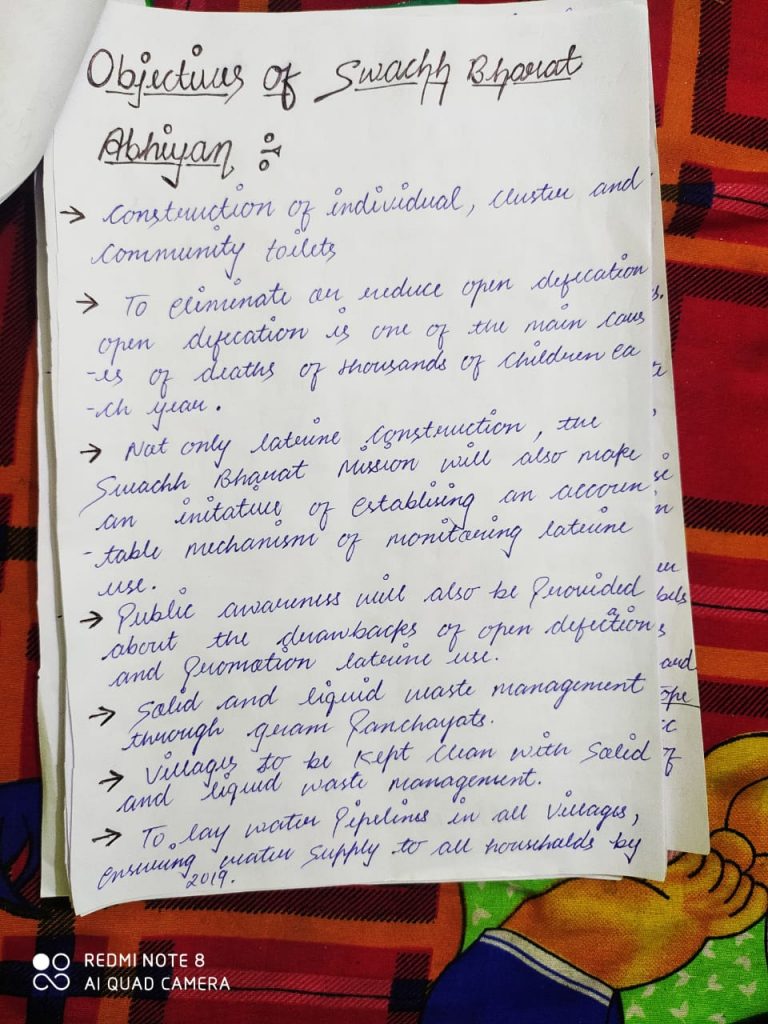 Objectives of Swachh Bharat
Abhiyan :-
→ Construction of individual, cluster and
community toilets
→ To eliminate or reduce open defecation
open defecation is one of the main caus
-es of deaths of thousands of children ea
-ch year.
→ Not only laterine construction, the
Swachh Bharat Mission will also make
an initative of establising an accoun
-table mechanism of monitoring laterine
use.
→ Public awareness will also be Provided
about the drawbacks of open defection
and Promotion laterine use.
→ Solid and liquid waste management
through gram Panchayats.
→ Villages to be kept clean with Solid
and liquid waste management.
→ To lay water Pipelines in all Villages,
ensuring water Supply to all households by
2019.
REDMI NOTE 8
AI QUAD CAMERA